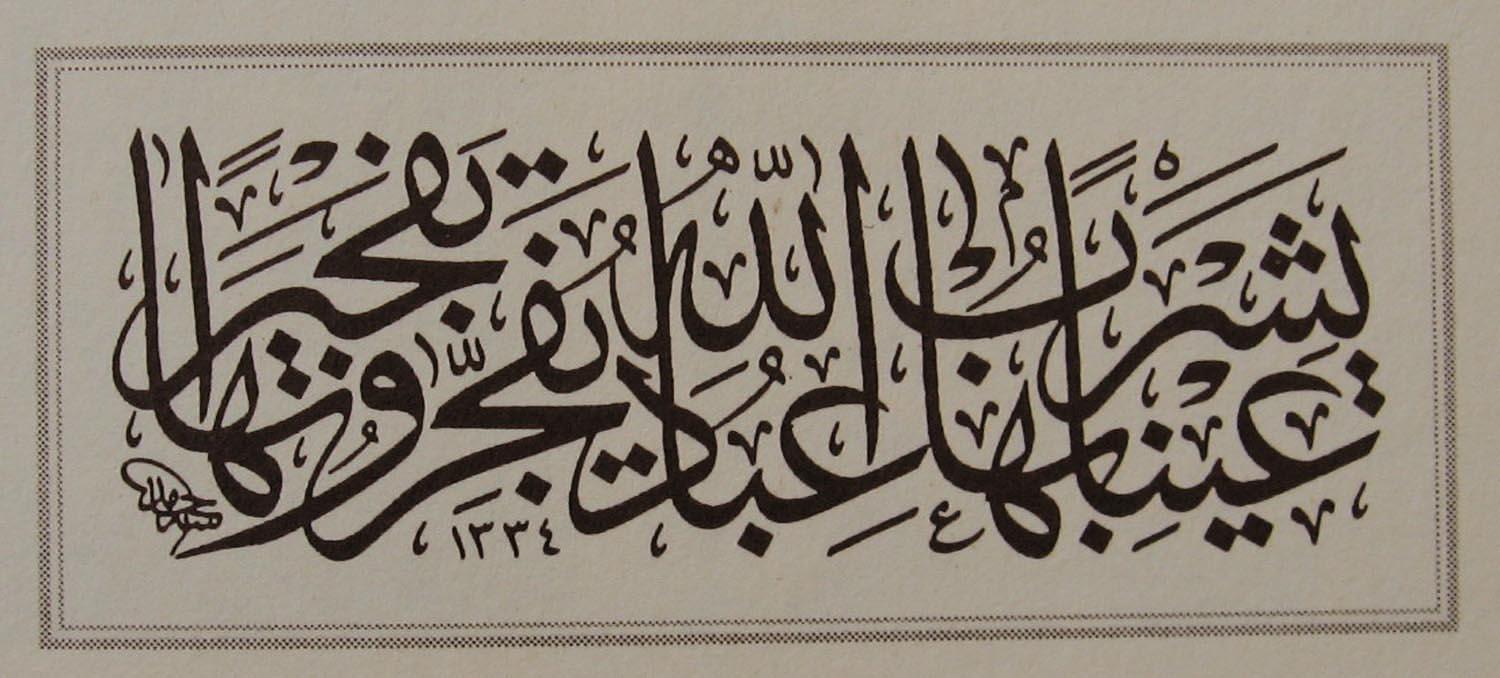 عَيْنًا يَشْرَبُ بِهَا عِبَادُ اللّٰهِ يُفَجِّرُونَهَا تَفْجِيرًا
١٣٣٤